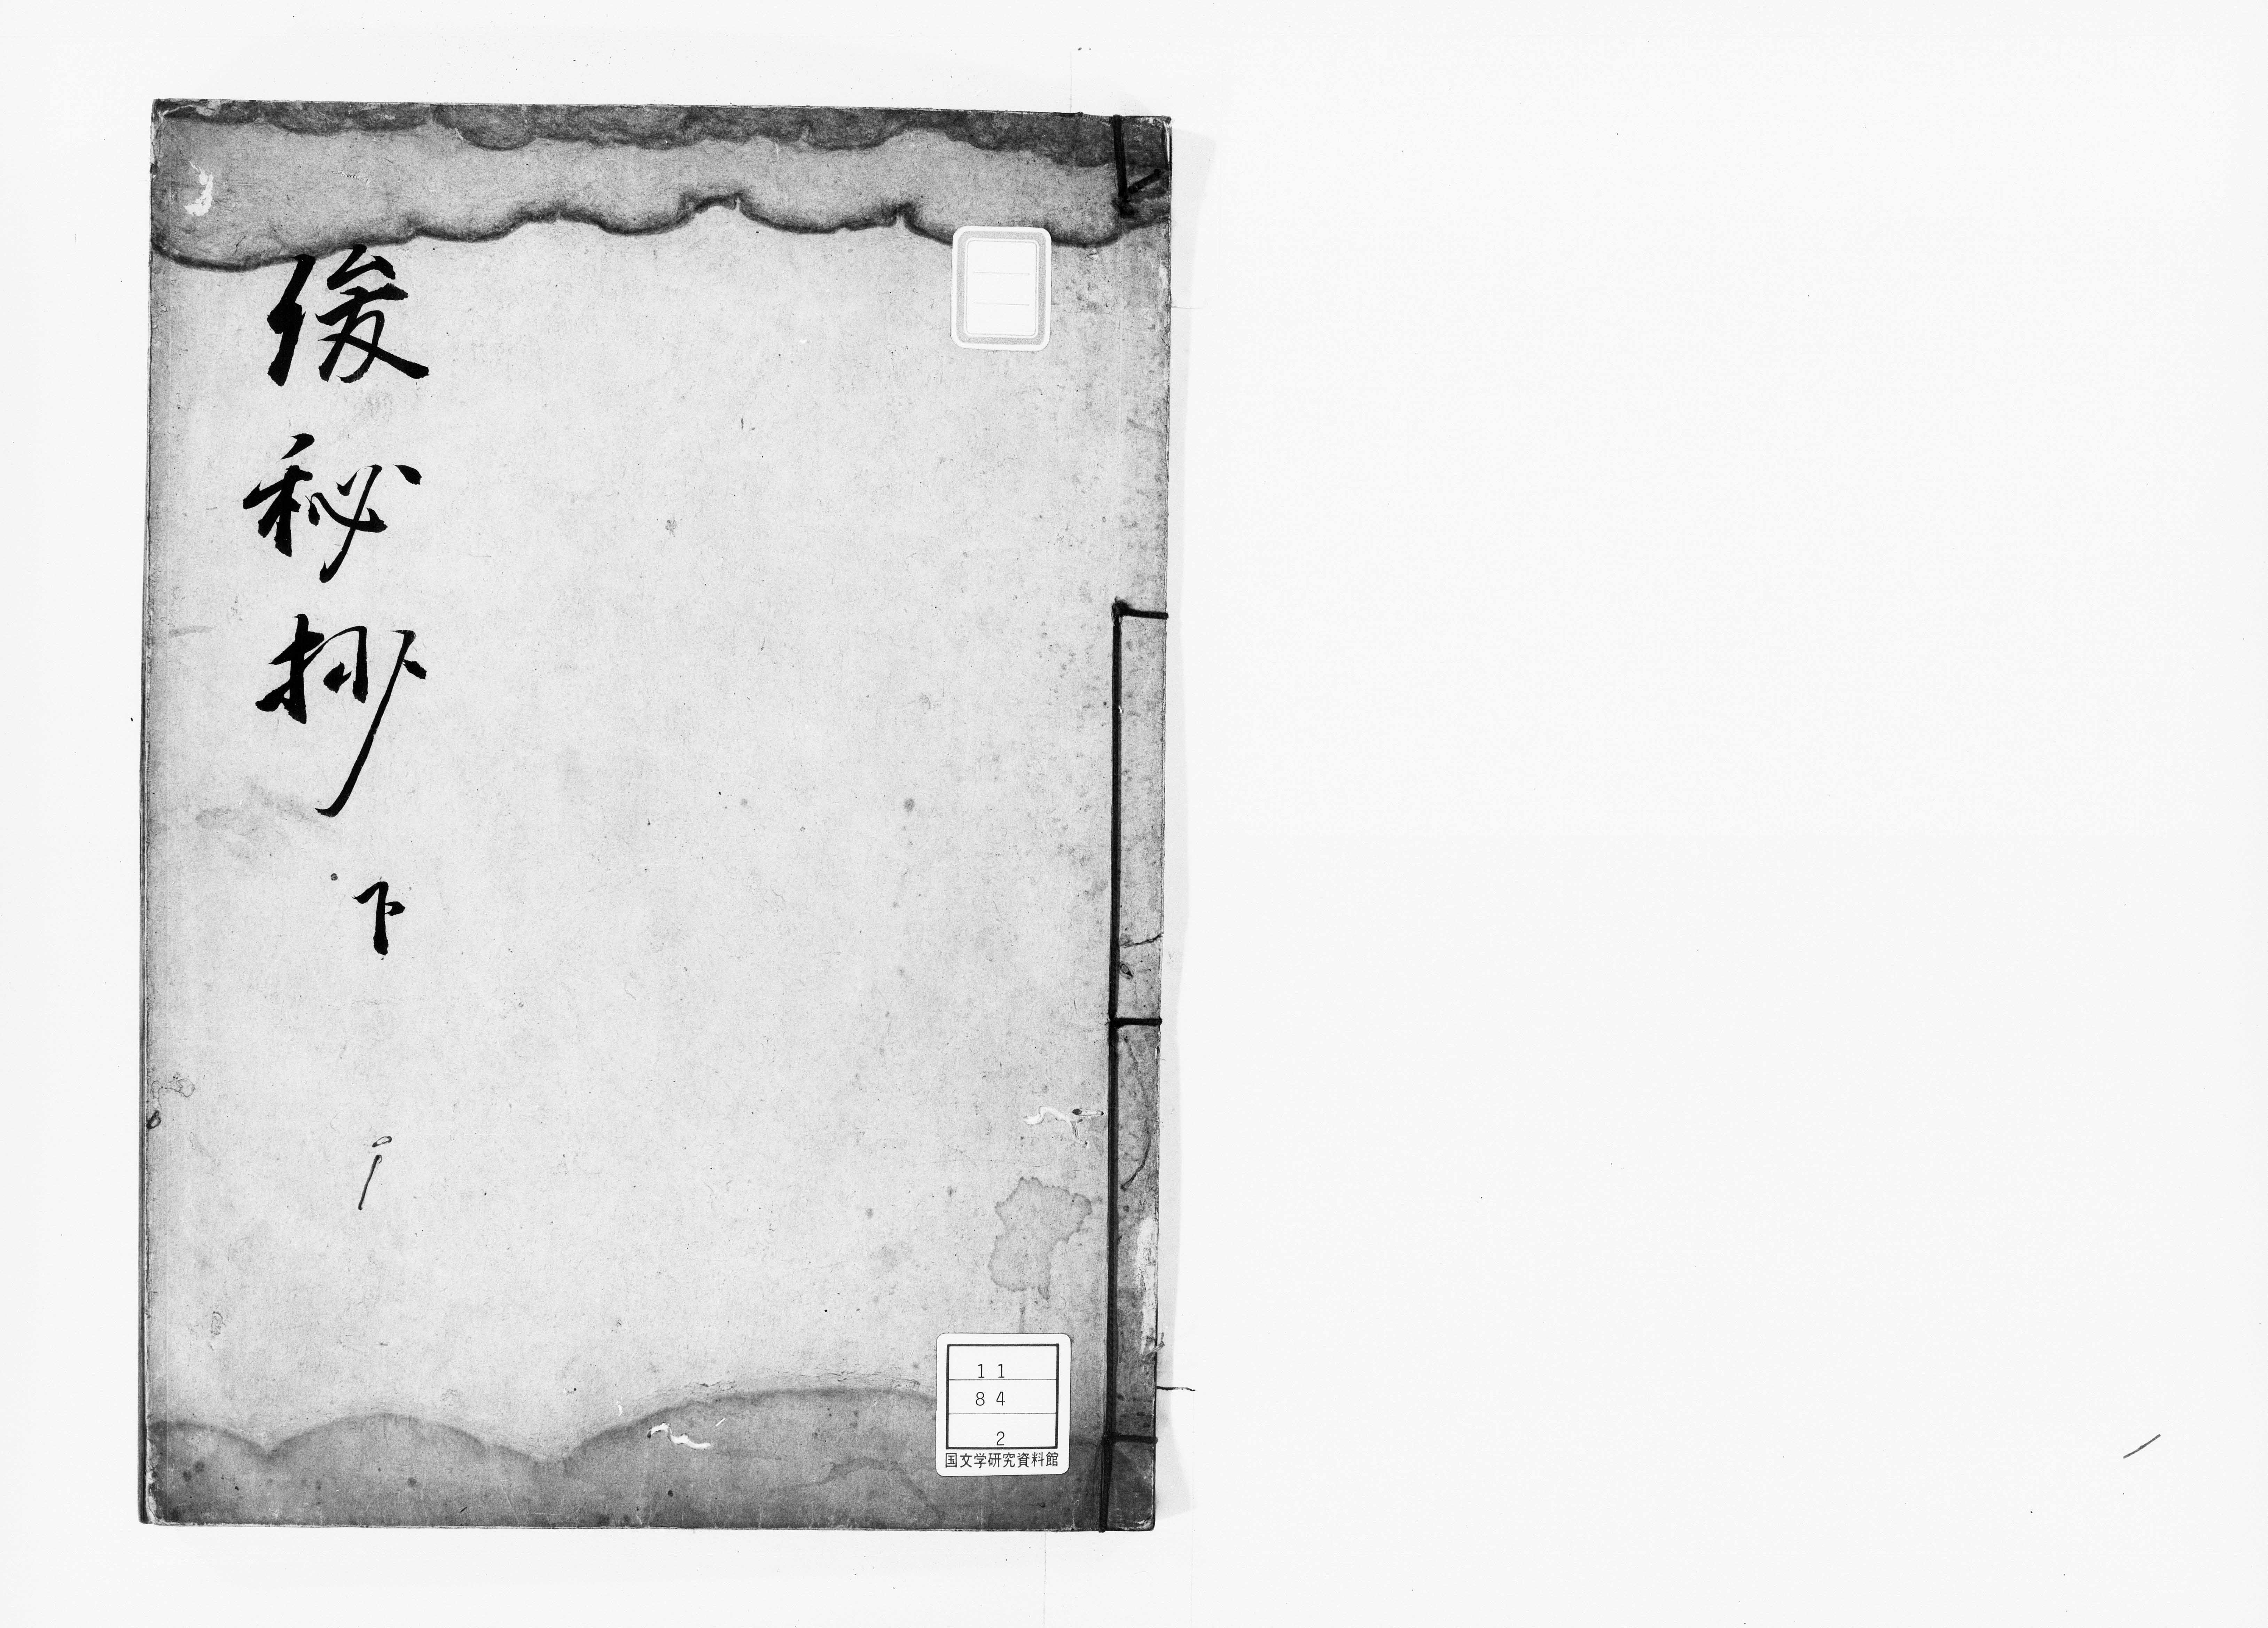 俊秘抄 下
11
84
2
国文学研究資料館